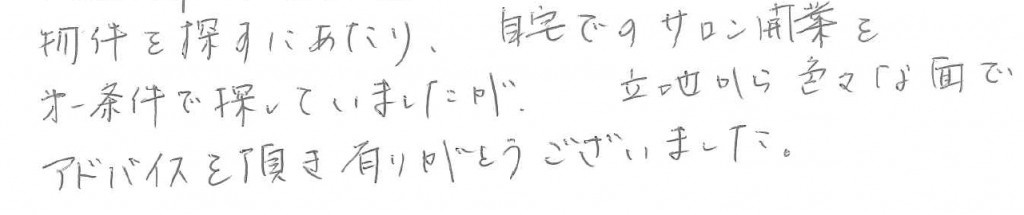 物件を探すにあたり、自宅でのサロン開業を
第一条件で探していましたが、立地から色々な面で
アドバイスを頂き有りがとうございました。